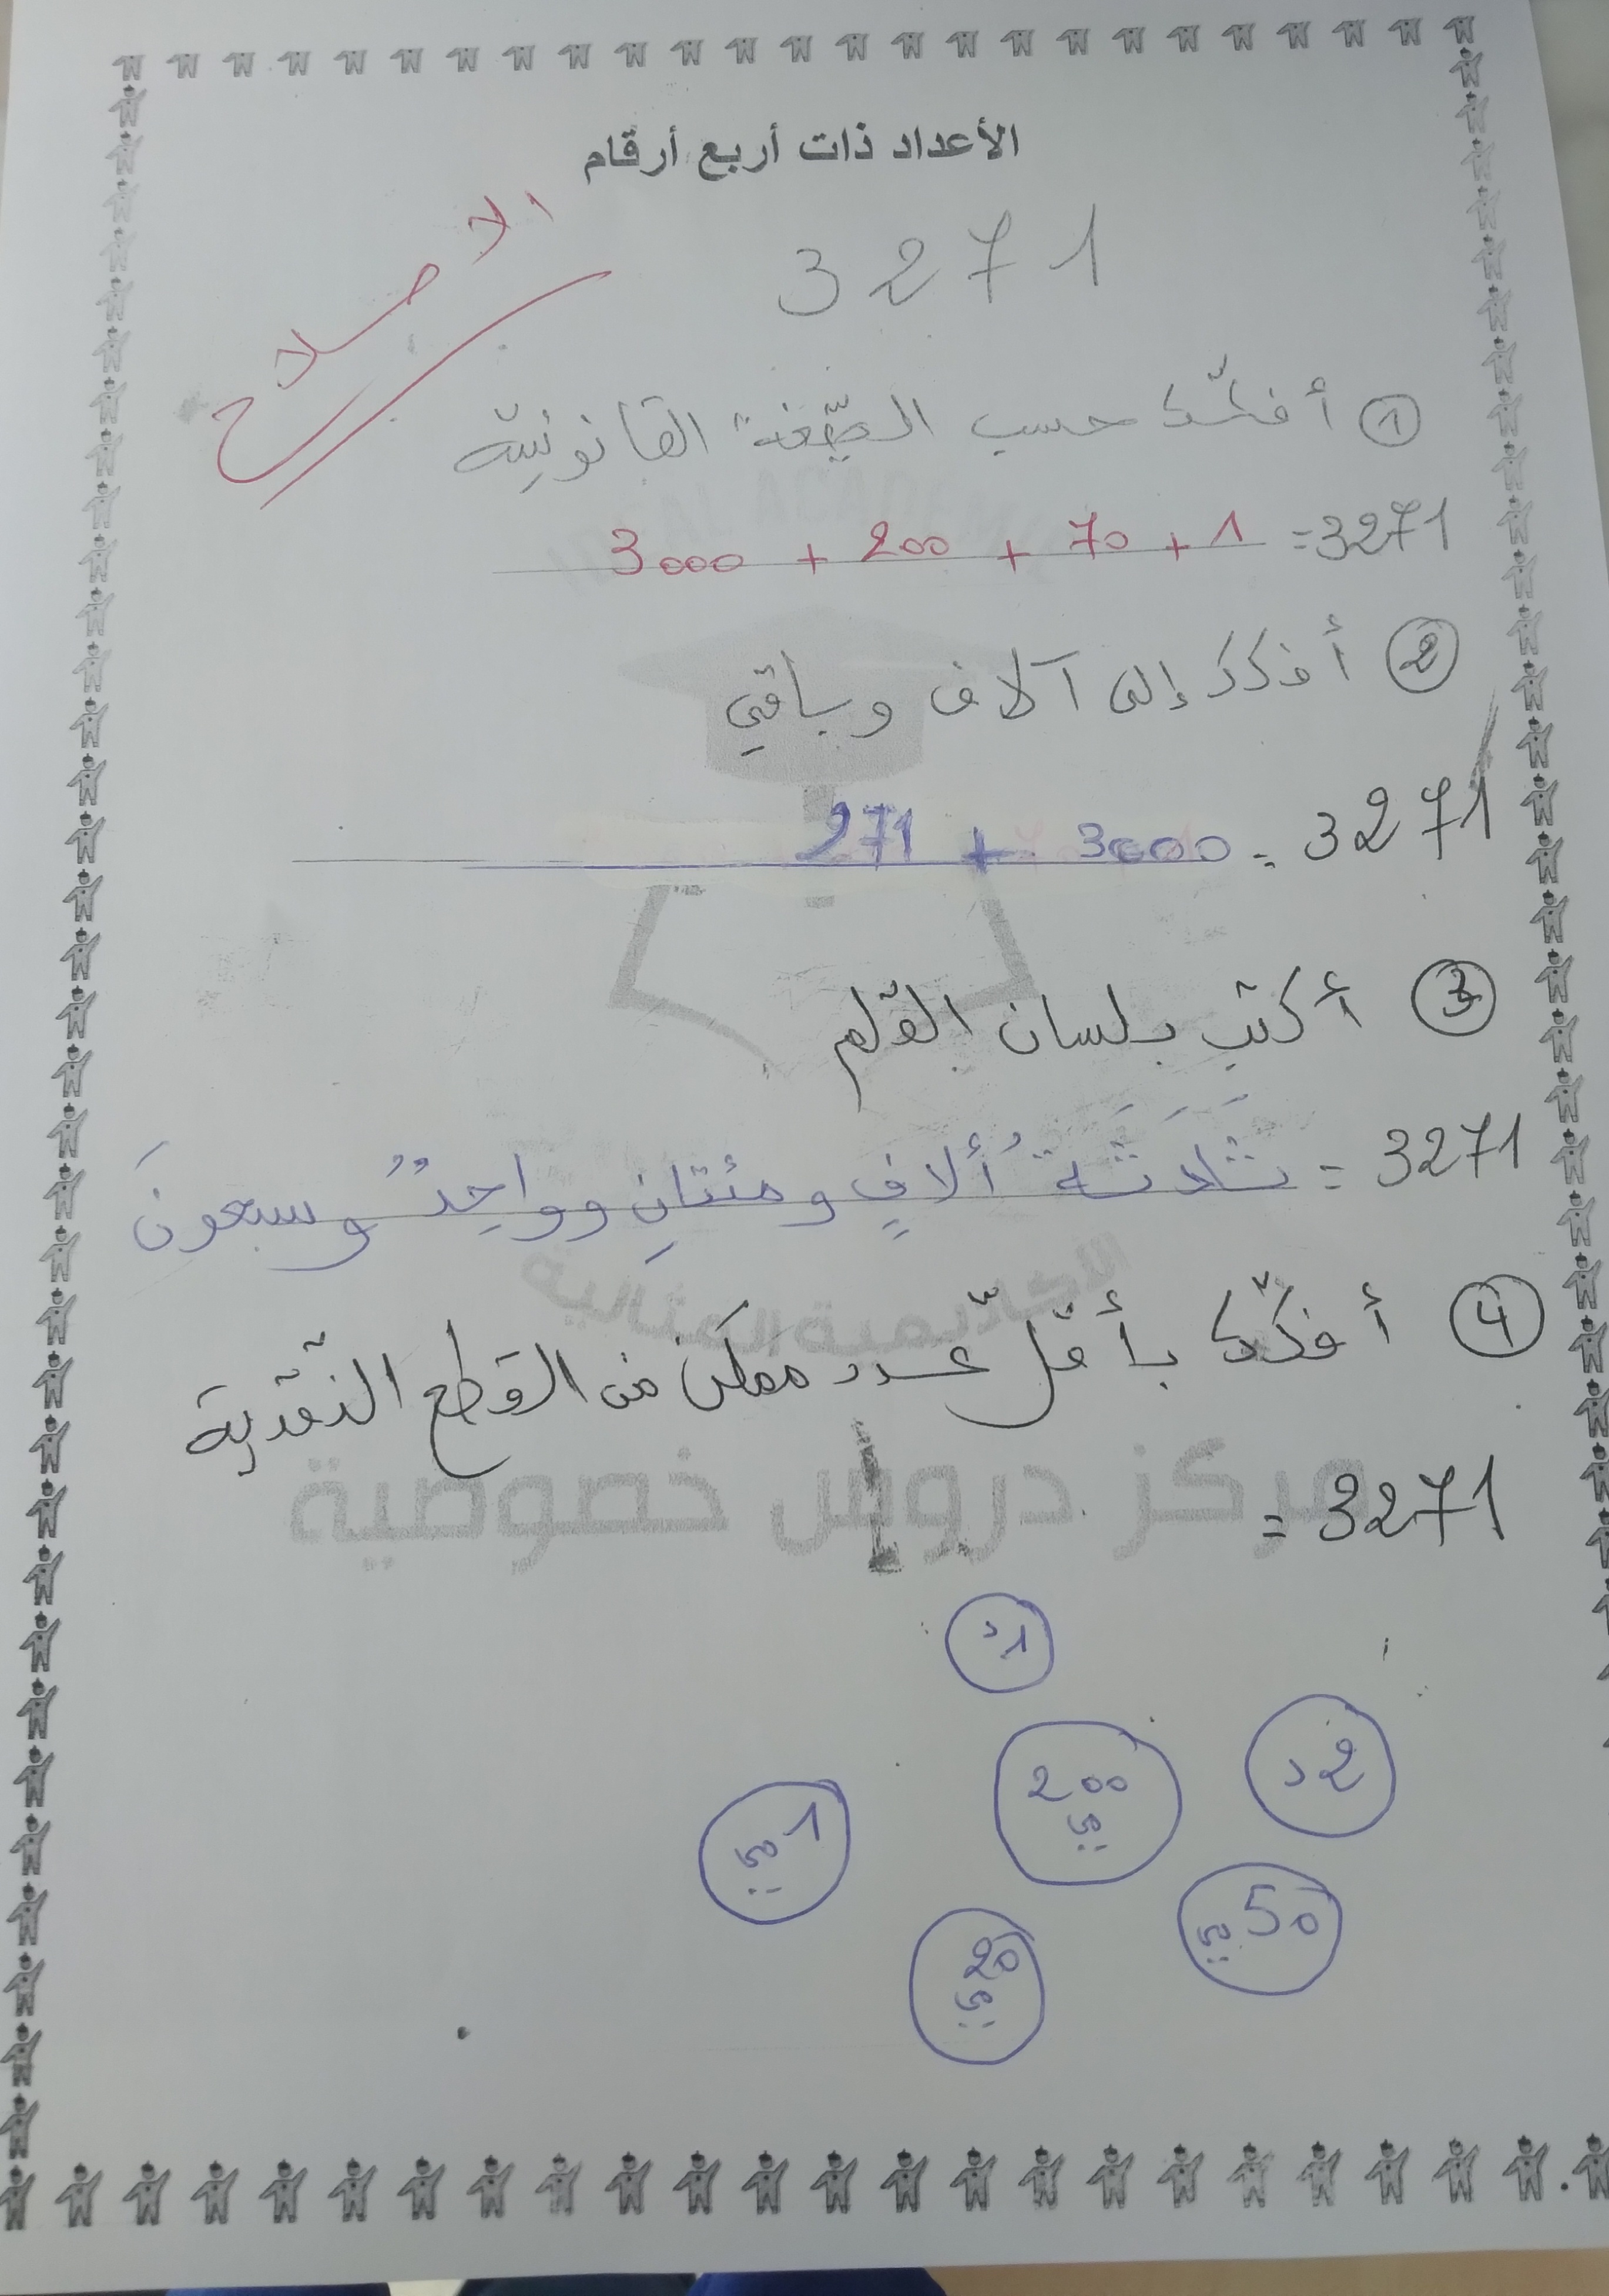 الأعداد ذات أربع أرقام
3271
الاصلاح
① أفكّك حسب الصّيغة القانونيّة
3271= 1 + 70 + 200 + 3000
② أفكك إلى آلاف وباقي
3271 = 3000 + 271
③ أكتب بلسان القلم
3271 = ثَلَاثَةُ ألافٍ ومئتانِ وواحِدٌ وسبعونَ
④ أفكّك بأقلّ عدد ممكن من القطع النّقدية
3271 =
1د
2د
200 مي
1 مي
50 مي
20 مي
الأكاديمية المثالية
مركز دروس خصوصية